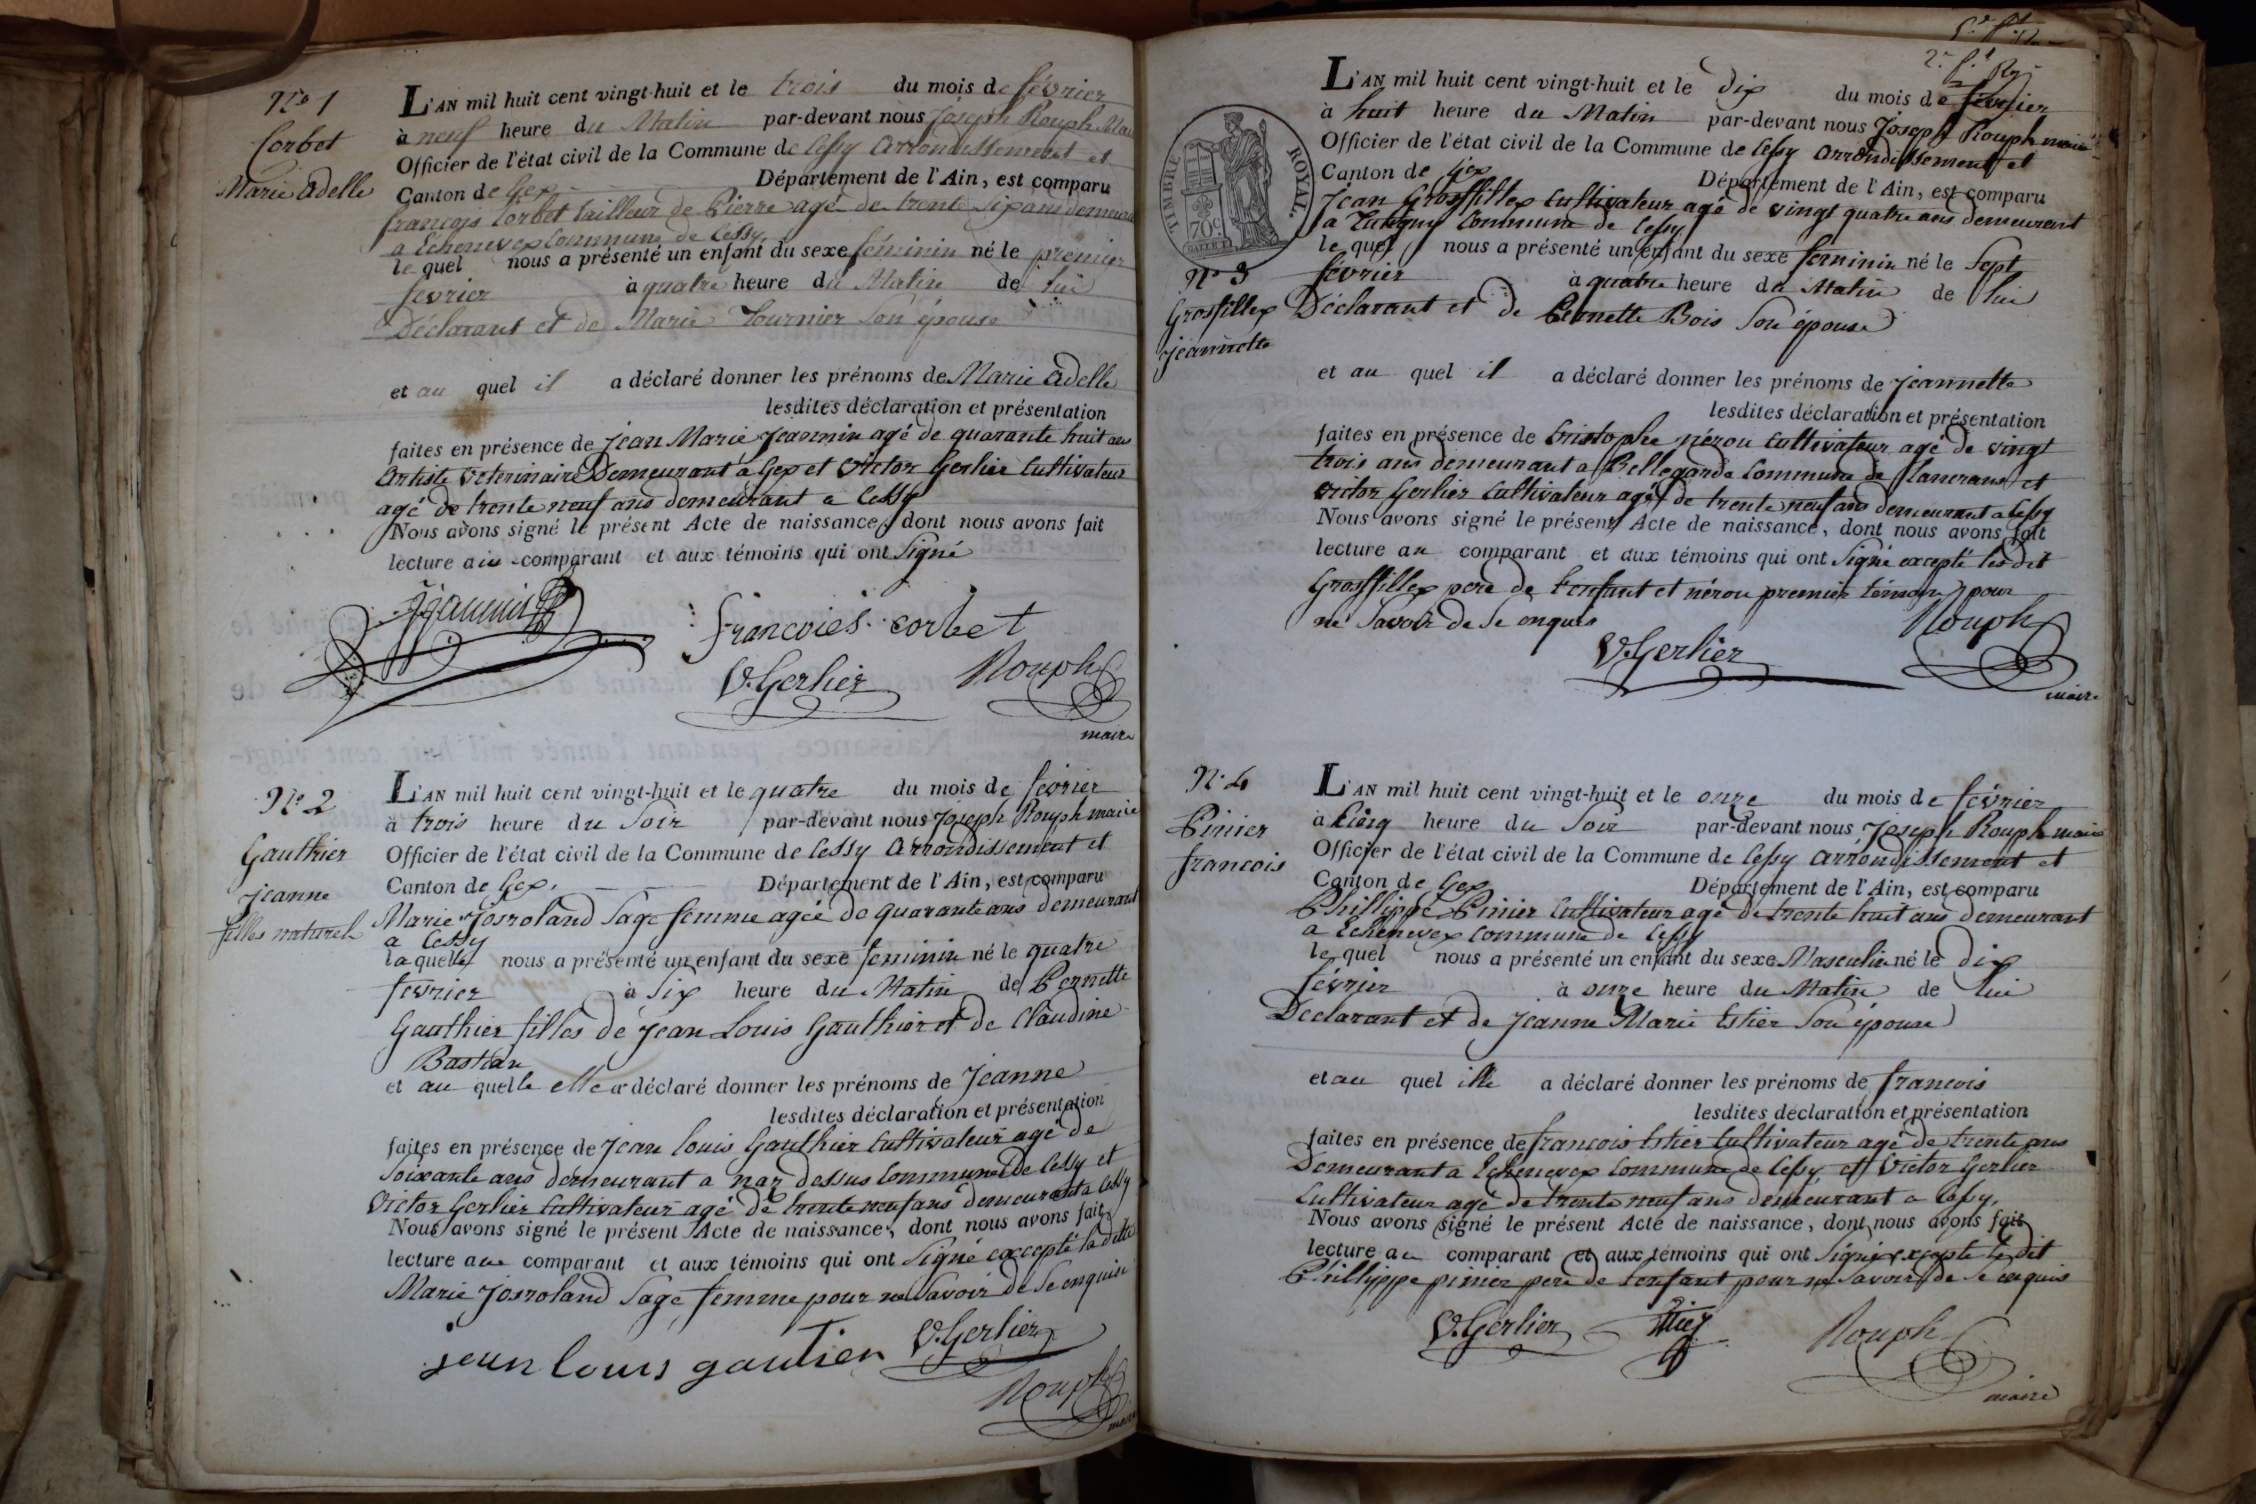 N.o 1
Corbet
Marie Adelle
L'AN mil huit cent vingt-huit et le trois du mois de février
à neuf heure du Matin par-devant nous Joseph Rouph Mai
Officier de l'état civil de la Commune de Cessy Arrondissement et
Canton de Gex Département de l'Ain, est comparu
françois Corbet tailleur de Pierre agé de trente six ans demeurant
a Echenevex Commune de Cessy
le quel nous a présenté un enfant du sexe féminin né le premier
fevrier à quatre heure du Matin de lui
Déclarant et de Marie Tournier Son épouse
et au quel il a déclaré donner les prénoms de Marie Adelle
lesdites déclaration et présentation
faites en présence de Jean Marie Jeannin agé de quarante huit ans
Artiste veterinaire Demeurant a Gex et Victor Gerlier Cultivateur
agé de trente neuf ans demeurant a Cessy
Nous avons signé le présent Acte de naissance, dont nous avons fait
lecture au comparant et aux témoins qui ont Signé
Jeannin
francoiés corbet
V. Gerlier Rouph
maire
N.o 2
Gauthier
Jeanne
filles naturel
L'AN mil huit cent vingt-huit et le quatre du mois de février
à trois heure du Soir par-devant nous Joseph Rouph maire
Officier de l'état civil de la Commune de Cessy Arrondissement et
Canton de Gex. Département de l'Ain, est comparu
Marie Josroland Sage femme agée de quarante ans demeurant
a Cessy
la quelle nous a présenté un enfant du sexe feminin né le quatre
fevrier à Six heure du Matin de Pernette
Gauthier filles de Jean Louis Gauthier et de Claudine
Bastian
et au quelle elle a déclaré donner les prénoms de Jeanne
lesdites déclaration et présentation
faites en présence de Jean Louis Gauthier Cultivateur agé de
Soixante ans demeurant a naz dessus Commune De Cessy et
Victor Gerlier Cultivateur agé de trente neuf ans demeurant a Cessy
Nous avons signé le présent Acte de naissance, dont nous avons fait
lecture aue comparant et aux témoins qui ont Signé excepté la dite
Marie Josroland Sage femme pour ne Savoir de Se enquise
jean louis gautier V. Gerlier
Rouph
maire
2.e f.t Roy
TIMBRE ROYAL.
70c.
N.o 3
Grosfillex
Jeannette
L'AN mil huit cent vingt-huit et le dix du mois de février
à huit heure du Matin par-devant nous Joseph Rouph maire
Officier de l'état civil de la Commune de Cessy Arrondissement et
Canton de Gex Département de l'Ain, est comparu
Jean Grosfillex Cultivateur agé de vingt quatre ans demeurant
a Tutegny Commune de Cessy
le quel nous a présenté un enfant du sexe feminin né le Sept
février à quatre heure du Matin de lui
Déclarant et de Pernette Bois Son épouse
et au quel il a déclaré donner les prénoms de Jeannette
lesdites déclaration et présentation
faites en présence de Cristophe nérou Cultivateur agé de vingt
trois ans demeurant a Bellegarde Commune de Lancrans et
Victor Gerlier Cultivateur agé de trente neuf ans demeurant a Cessy
Nous avons signé le présent Acte de naissance, dont nous avons fait
lecture au comparant et aux témoins qui ont Signé excepté les dit
Grosffillex pere de Lenfant et nérou premier témoin pour
ne Savoir de Se enquis
V. Gerlier Rouph
maire
N.o 4
Pinier
francois
L'AN mil huit cent vingt-huit et le onze du mois de février
à Cienq heure du Soir par-devant nous Joseph Rouph maire
Officier de l'état civil de la Commune de Cessy Arrondissement et
Canton de Gex Département de l'Ain, est comparu
Phillippe Pinier Cultivateur agé de trente huit ans demeurant
a Echenevex commune de Cessy
le quel nous a présenté un enfant du sexe Masculin né le dix
février à onze heure du Matin de lui
Déclarant et de Jeanne Marie Estier Son épouse
et au quel ille a déclaré donner les prénoms de francois
lesdites déclaration et présentation
faites en présence de francois Estier Cultivateur agé de trente ans
Demeurant a Echenevex Commune de Cessy et Victor Gerlier
Cultivateur agé de trente neuf ans demeurant a Cessy.
Nous avons signé le présent Acte de naissance, dont nous avons fait
lecture au comparant et aux témoins qui ont Signé excepté le dit
Phillyppe pinier pere de Lenfant pour ne Savoir de Se enquis
V. Gerlier Rouph
maire